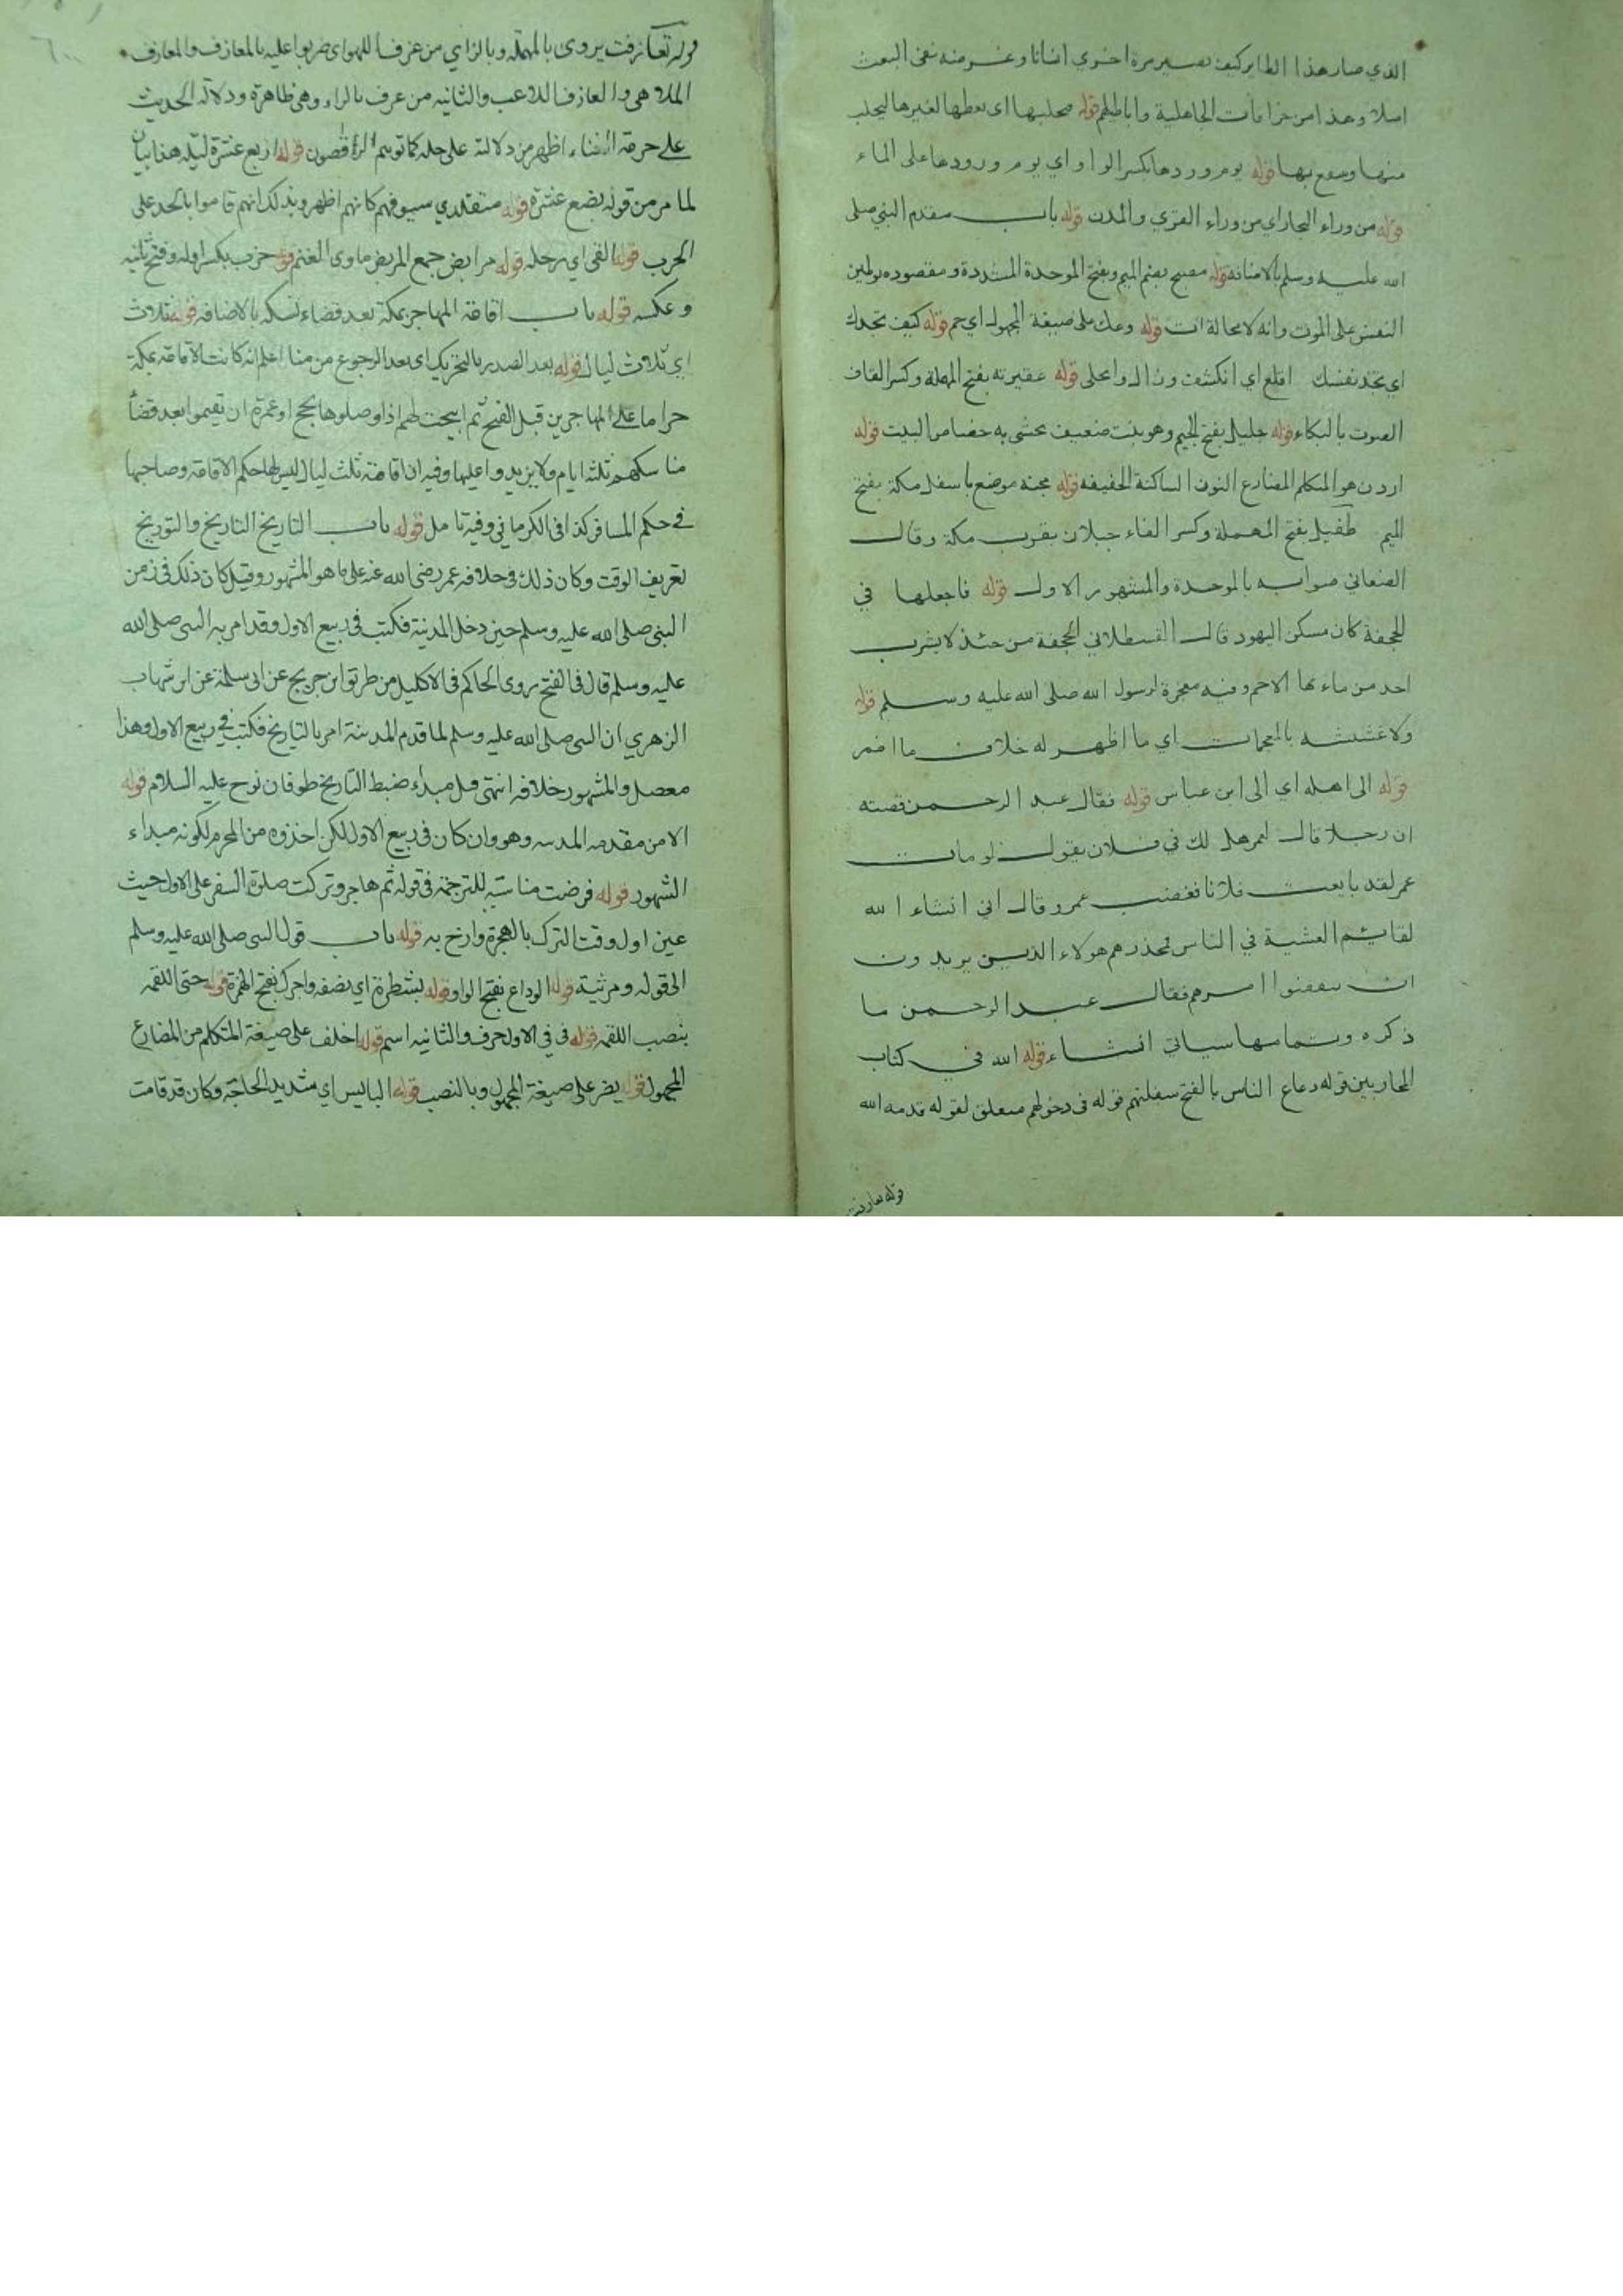 الذي صار هذا الطاير كيف تصير مرة اخري انسانا وغرضه نفى البعث
اصلا وهذا من خرافات الجاهلية واباطيلهم قوله يحلبها اى يعطها لغيرها ليحلب
منها وينتفع بها قوله يوم وردها بكسر الواو اي يوم ورودها على الماء
قوله من وراء البحار اي من وراء القري والمدن قوله باب مقدم النبي صلى
الله عليه وسلم بالاضافة قوله مصبح بضم الميم وبفتح الموحدة المشددة ومقصوده توطين
النفس على الموت وانه لا محالة ات قوله وعك على صيغة المجهول اي حم قوله كيف تجدك
اي تجد نفسك اقلع اي انكشف وزال وانجلى قوله عقيرته بفتح المهملة وكسر القاف
الصوت بالبكاء قوله جليل بفتح الجيم وهو نبت ضعيف يحشى به خصاص البيت قوله
اردن هو المتكلم المضارع النون الساكنة الخفيفه قوله مجنه موضع باسفل مكة بفتح
الميم طفيل بفتح المهملة وكسر الفاء جبلان بقرب مكة وقال
الصنعاني صوابه بالموحدة والمشهور الاول قوله فاجعلها في
الجحفة كان مسكن اليهود قال القسطلاني الجحفة من حئذ لا يشرب
احد من ماءها الا حم وفيه معجزة لرسول الله صلى الله عليه وسلم قوله
ولا غششته بالمعجمات اي ما اظهر له خلاف ما اضمر
قوله الى اهله اي الى ابن عباس قوله فقال عبد الرحمن قصته
ان رجلا قال لعمر هل لك في فلان يقول لو مات
عمر لقد بايعت فلانا فغضب عمر وقال اني انشاء الله
لقائم العشية في الناس محذرهم هولاء الذين يريدون
ان يغصبوا امرهم فقال عبد الرحمن ما
ذكره وتمامها سياتي انشاء قوله الله في كتاب
المحاربين قوله رعاع الناس بالفتح سفلتهم قوله في دخولهم متعلق لقوله قدمه الله
قوله تعازفت
قوله تعازفت يروى بالمهملة وبالزاي من عزف اللهو اى ضربوا عليه بالمعازف والمعازف
الملاهى والعازف اللاعب والثانيه من عرف بالراء وهى ظاهرة ودلالة الحديث
على حرمة الغناء اظهر من دلالته على حله كما توهم الرقاصون قوله اربع عشرة ليلة هذا بيان
لما مر من قوله بضع عشرة قوله متقلدي سيوفهم كانهم اظهروا بذلك انهم قاموا بالجد على
الحرب قوله القى اي رحله قوله مرابض جمع المربض ماوى الغنم قوله خرب بكسر اوله وفتح ثانيه
وعكسه قوله باب اقامة المهاجر بمكة بعد قضاء نسكه بالاضافه قوله ثلاث
اي ثلاث ليال قوله بعد الصدر بالتحريك اى بعد الرجوع من منا اعلم انه كانت الاقامة بمكة
حراما على المهاجرين قبل الفتح ثم ابيحت لهم اذا وصلوها بحج او عمرة ان تقيموا بعد قضأ
مناسكهم ثلثه ايام ولا يزيدوا عليها وفيه ان اقامة ثلث ليال ليس لها حكم الاقامة وصاحبها
في حكم المسافر كذا فى الكرماني وفيه تامل قوله باب التاريخ التاريخ والتوريخ
تعريف الوقت وكان ذلك فى خلافة عمر رضى الله عنه على ما هو المشهور وقيل كان ذلك فى زمن
النبى صلى الله عليه وسلم حين دخل المدينة فكتب فى ربيع الاول وقد امر به النبى صلى الله
عليه وسلم قال فى الفتح روى الحاكم فى الاكليل من طريق ابن جريج عن ابى سلمة عن ابن شهاب
الزهري ان النبى صلى الله عليه وسلم لما قدم المدينة امر بالتاريخ فكتب في ربيع الاول وهذا
معضل والمشهور خلافه انتهى وقيل مبداء ضبط التاريخ طوفان نوح عليه السلام قوله
الا من مقدمه المدينه وهو وان كان فى ربيع الاول لكن اخذوه من المحرم لكونه مبداء
الشهور قوله فرضت مناسبته للترجمة فى قوله ثم هاجر وتركت صلوة السفر على الاول حيث
عين اول وقت الترك بالهجرة وارخ به قوله باب قول النبى صلى الله عليه وسلم
الى قوله ومرثية قوله الوداع بفتح الواو قوله بشطره اي نصفه واجرك بفتح الهمزة قوله حتى اللقمة
بنصب اللقمة قوله فى في الاول حرف والثانيه اسم قوله اخلف على صيغة المتكلم من المضارع
المجهول قوله يضر على صيغة المجهول وبالنصب قوله البايس اي شديد الحاجة وكان قد قامت